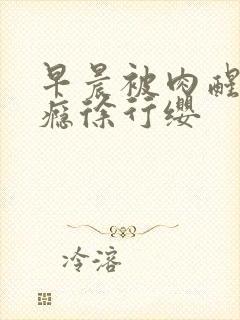 早晨被肉醒
瘾徐行缨
冷溶